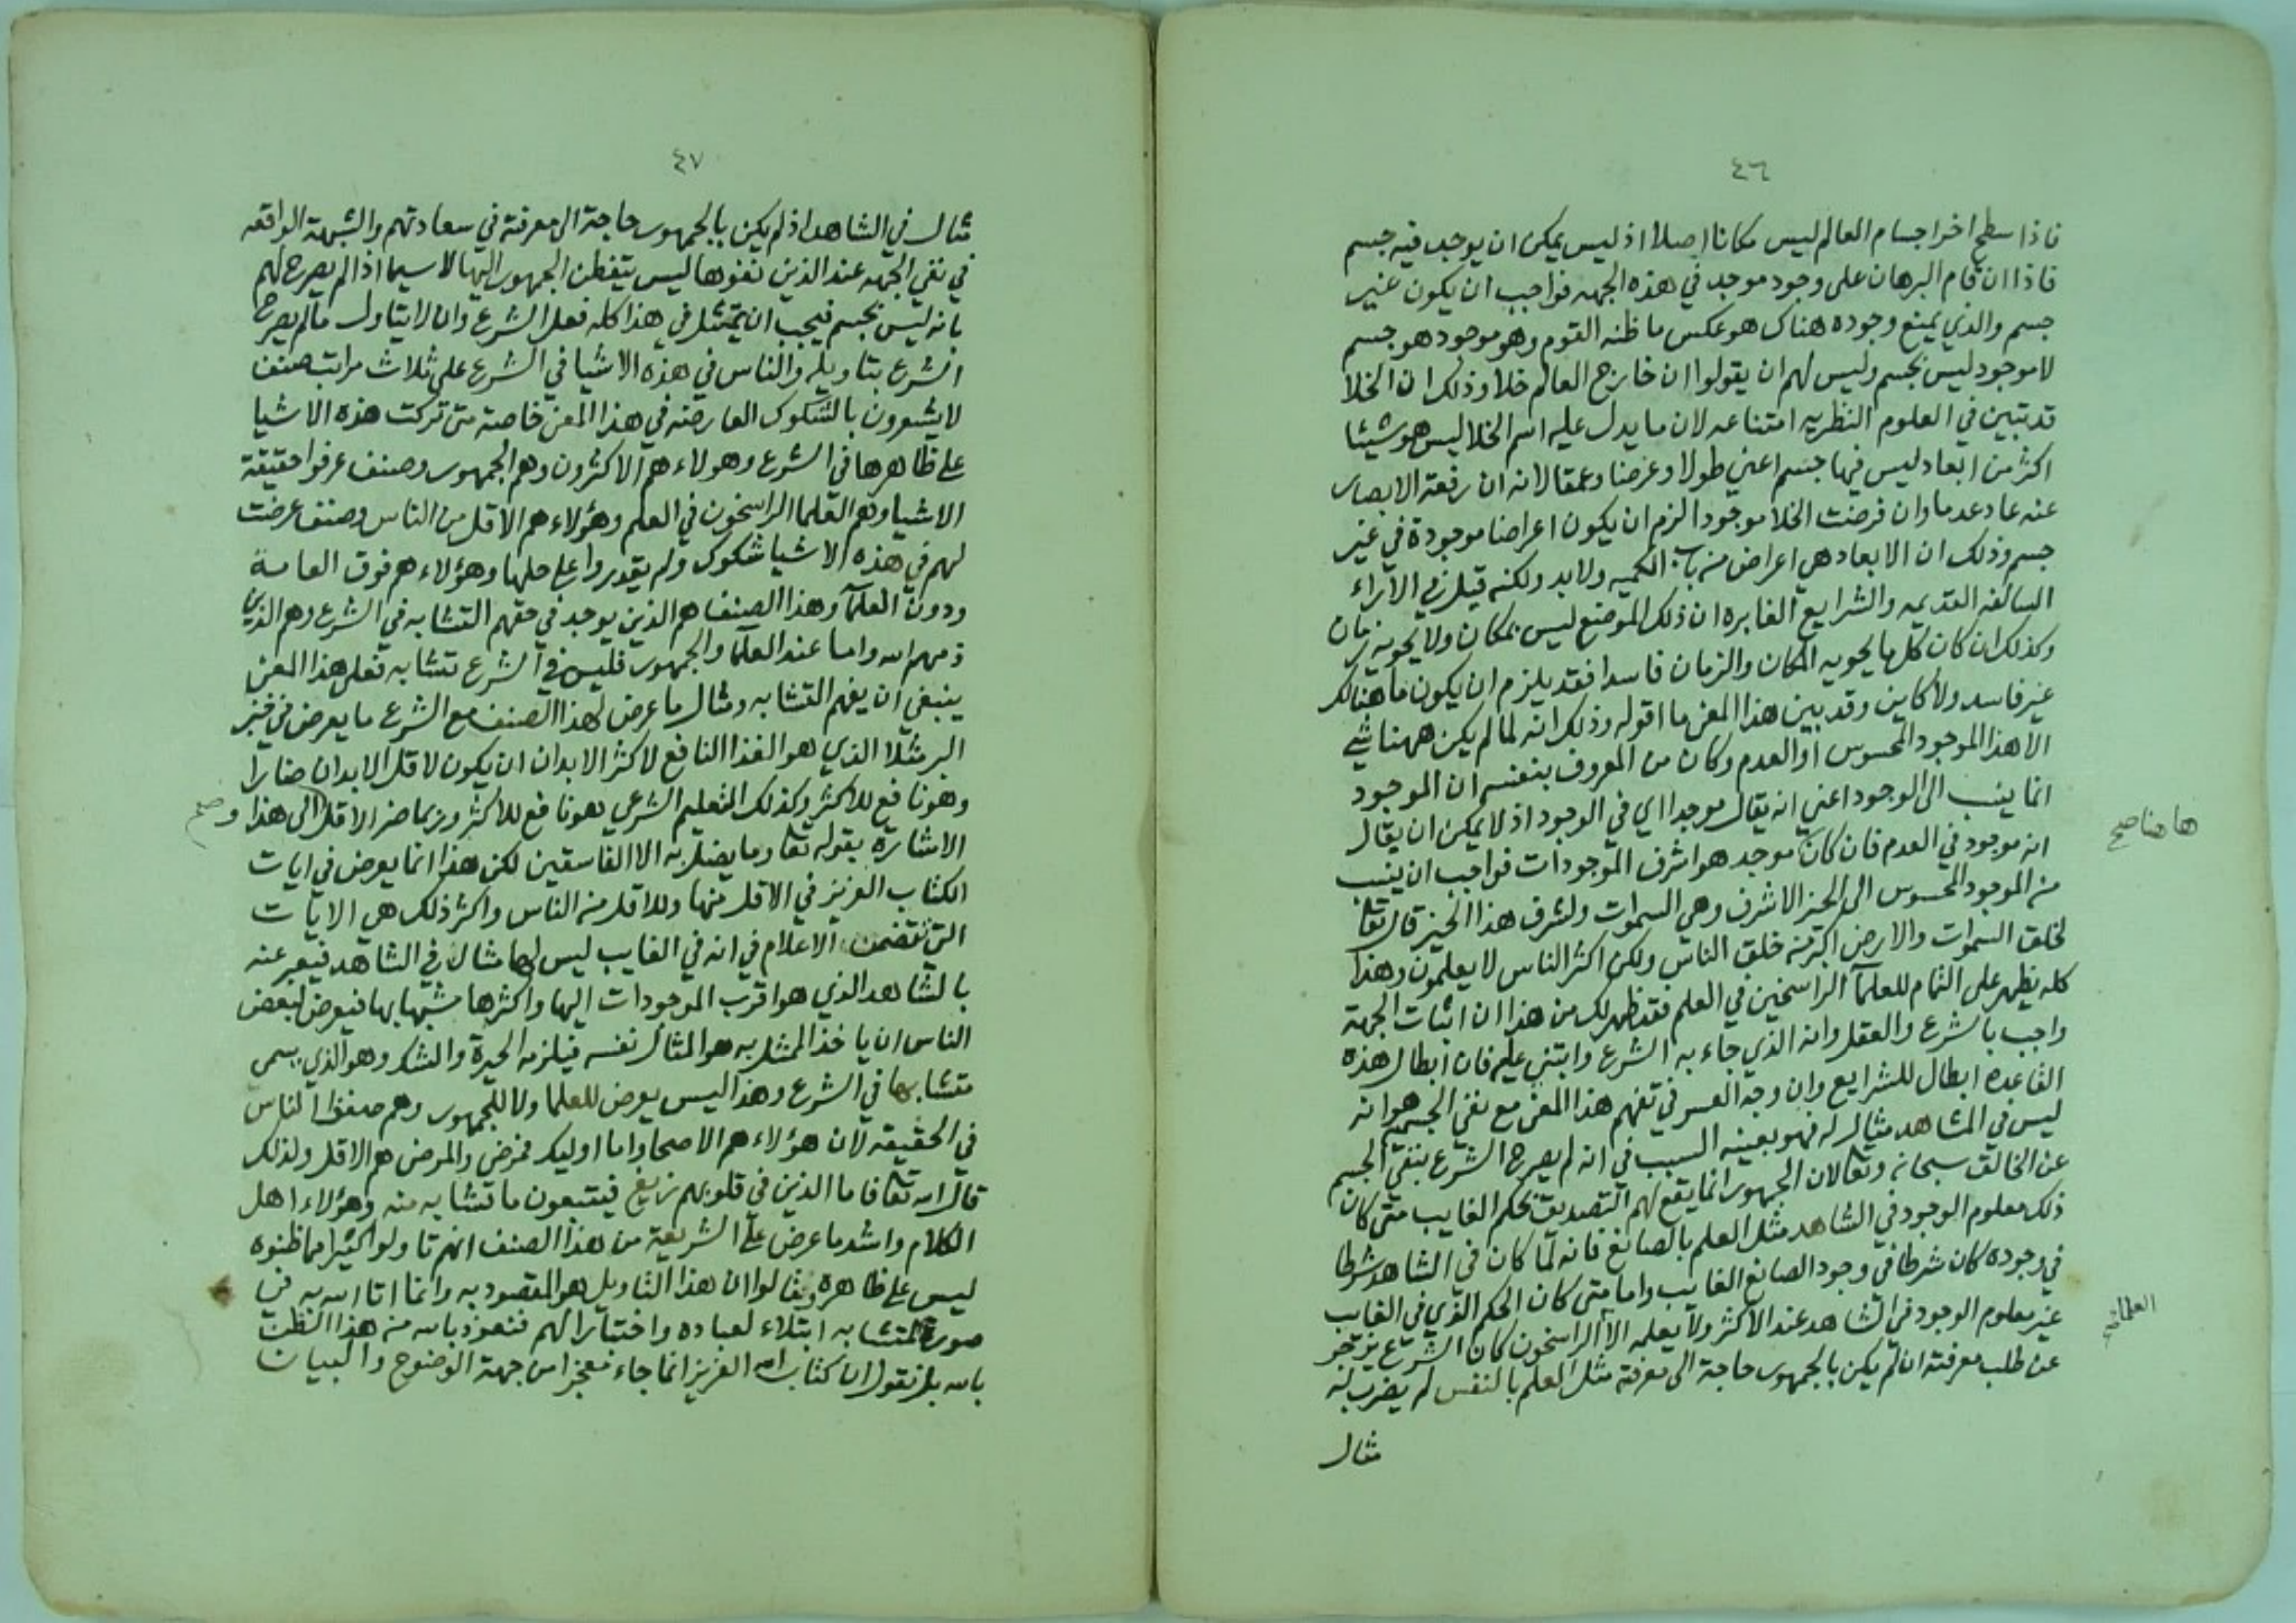 ٤٦
فاذا سطح اخر اجسام العالم ليس مكانا اصلا اذ ليس يمكن ان يوجد فيه جسم
فاذا ان قام البرهان على وجود موجد في هذه الجهه فواجب ان يكون غير
جسم والذي يمنع وجوده هناك هو عكس ما ظنه القوم وهو موجود هو جسم
لا موجود ليس بجسم وليس لهم ان يقولوا ان خارج العالم خلا وذلك ان الخلا
قد تبين في العلوم النظريه امتناعه لان ما يدل عليه اسم الخلا ليس هو شيئا
اكثر من ابعاد ليس فيها جسم اعني طولا وعرضا وعمقا لانه ان رفعة الابصار
عنه عاد عدما وان فرضت الخلا موجودا لزم ان يكون اعراضا موجودة في غير
جسم وذلك ان الابعاد هي اعراض من باب الكميه ولا بد ولكنه قيل في الآراء
السالفه القديمه والشرايع الغابره ان ذلك الموضع ليس بمكان ولا يحويه زمان
وكذلك ان كان كل ما يحويه المكان والزمان فاسدا فقد يلزم ان يكون ما هنالك
غير فاسد ولا كاين وقد بين هذا المعن ما اقوله وذلك انه لما لم يكن ههنا شي
الا هذا الموجود المحسوس او العدم وكان من المعروف بنفسه ان الموجود
انما ينسب الى الوجود اعني انه يقال موجدا اي في الوجود اذ لا يمكن ان يقال
ها هنا صح
انه موجود في العدم فان كان موجد هو اشرف الموجودات فواجب ان ينسب
من الموجود المحسوس الى الحيز الاشرف وهي السموات ولشرف هذا الحيز قال تعا
لخلق السموات والارض اكبر من خلق الناس ولكن اكثر الناس لا يعلمون وهذا
كله يظهر على التمام للعلمآ الراسخين في العلم فقد ظهر لك من هذا ان اثبات الجهة
واجب بالشرع والعقل وانه الذي جاء به الشرع وابتني عليه فان ابطال هذه
القاعده ابطال للشرايع وان وجه العسر في تفهم هذا المعن مع نفي الجسم هو انه
ليس في المشاهد مثال له فهو بعينه السبب في انه لم يصرح الشرع بنفي الجسم
عن الخالق سبحانه وتعالا لان الجمهور انما يقع لهم التصديق بحكم الغايب متى كان
ذلك معلوم الوجود في الشاهد مثل العلم بالصانع فانه لما كان في الشاهد شرطا
في وجوده كان شرطا في وجود الصانع الغايب واما متى كان الحكم الذي في الغايب
غير معلوم الوجود في الشاهد عند الاكثر ولا يعلمه الا الراسخون كان الشرع يزجر
عن طلب معرفته ان لم يكن بالجمهور حاجة الى معرفة مثل العلم بالنفس لم يضرب له
مثال
٤٧
مثال في الشاهد اذ لم يكن بالجمهور حاجة الى معرفته في سعادتهم والشبهة الواقعه
في نفي الجهه عند الذين نفوها ليس يتفطن الجمهور اليها لا سيما اذا لم يصرح لهم
بانه ليس بجسم فيجب ان يمتثل في هذا كله فعل الشرع وان لا يتاول ما لم يصرح
الشرع بتاويله والناس في هذه الاشيا في الشرع على ثلاث مراتب صنف
لا يشعرون بالشكوك العارضه في هذا المعن خاصة متى تركت هذه الاشيا
على ظاهرها في الشرع وهولاء هم الاكثرون وهم الجمهور وصنف عرفوا حقيقة
الاشيا وهم العلما الراسخون في العلم وهؤلاء هم الاقل من الناس وصنف عرضت
لهم في هذه الاشيا شكوك ولم يقدروا على حلها وهؤلاء هم فوق العامة
ودون العلمآ وهذا الصنف هم الذين يوجد في حقهم التشابه في الشرع وهم الذين
ذمهم الله واما عند العلمآ والجمهور فليس في الشرع تشابه فعلى هذا المعن
ينبغي ان يفهم التشابه ومثال ما عرض لهذا الصنف مع الشرع ما يعرض في خبز
البر مثلا الذي هو الغذا النافع لاكثر الابدان ان يكون لاقل الابدان ضارا
وهو نافع للاكثر وكذلك التعليم الشرعي هو نافع للاكثر وربما ضر الاقل والى هذا
الاشارة بقوله تعا وما يضل به الا الفاسقين لكن هذا انما يعرض في ايات
الكتاب العزيز في الاقل منها وللاقل من الناس واكثر ذلك هي الايات
التي تتضمن الاعلام في انه في الغايب ليس لها مثال في الشاهد فيعبر عنه
بالشاهد الذي هو اقرب الموجودات اليها واكثرها شبها بها فيعرض لبعض
الناس ان ياخذ الممثل به هو المثال نفسه فيلزمه الحيرة والشك وهو الذي يسمى
متشابها في الشرع وهذا ليس يعرض للعلما ولا للجمهور وهم صنفوا الناس
في الحقيقه لان هؤلاء هم الاصحا واما اوليك فمرضى والمرضى هم الاقل ولذلك
قال الله تعا فاما الذين في قلوبهم زيغ فيتبعون ما تشابه منه وهؤلاء اهل
الكلام واشد ما عرض على الشريعة من هذا الصنف انهم تاولوا كثيرا مما ظنوه
ليس على ظاهره وقالوا ان هذا التاويل هو المقصود به وانما اتا الله به في
صورة المتشابه ابتلاء لعباده واختبارا لهم فنعوذ بالله من هذا الظن
بالله بل نقول ان كتاب الله العزيز انما جاء معجزا من جهة الوضوح والبيان